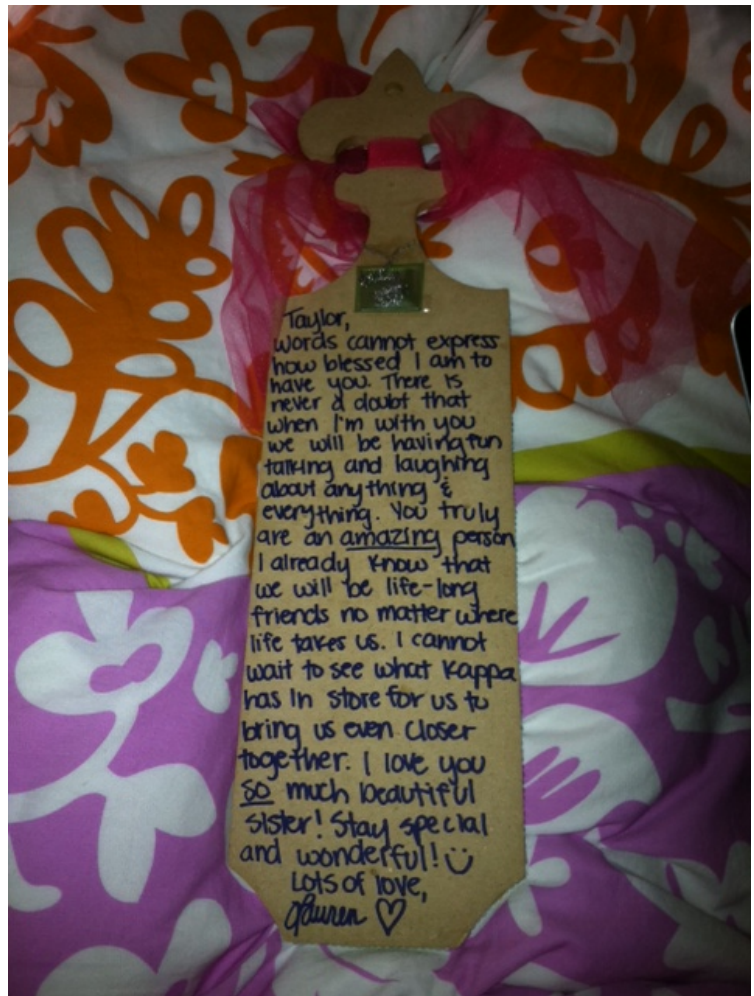 Taylor,
Words cannot express
how blessed I am to
have you. There is
never a doubt that
when I'm with you
we will be having fun
talking and laughing
about anything &
everything. You truly
are an amazing person
I already know that
we will be life-long
friends no matter where
life takes us. I cannot
wait to see what Kappa
has in store for us to
bring us even closer
together. I love you
so much beautiful
sister! Stay special
and wonderful! :)
Lots of love,
Lauren ♡